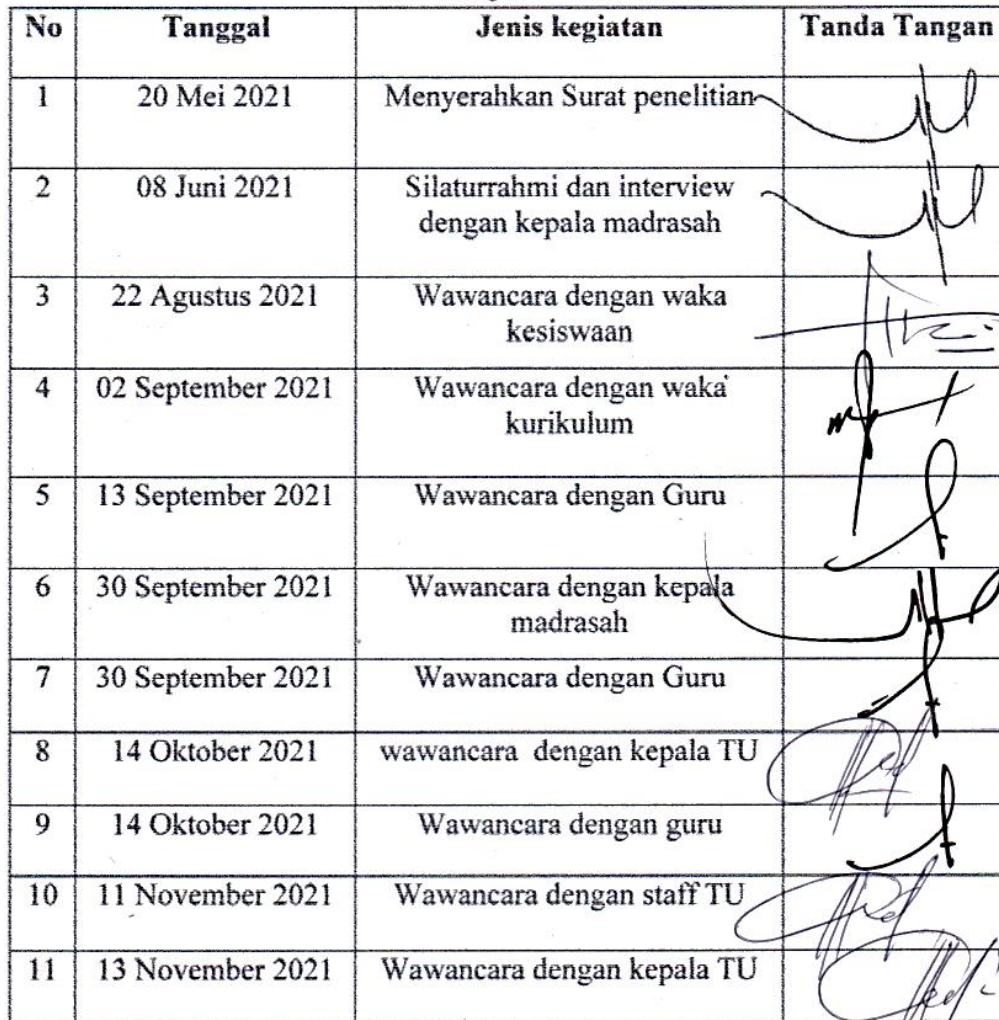 No Tanggal Jenis kegiatan Tanda Tangan
1 20 Mei 2021 Menyerahkan Surat penelitian
2 08 Juni 2021 Silaturrahmi dan interview
dengan kepala madrasah
3 22 Agustus 2021 Wawancara dengan waka
kesiswaan
4 02 September 2021 Wawancara dengan waka
kurikulum
5 13 September 2021 Wawancara dengan Guru
6 30 September 2021 Wawancara dengan kepala
madrasah
7 30 September 2021 Wawancara dengan Guru
8 14 Oktober 2021 wawancara dengan kepala TU
9 14 Oktober 2021 Wawancara dengan guru
10 11 November 2021 Wawancara dengan staff TU
11 13 November 2021 Wawancara dengan kepala TU